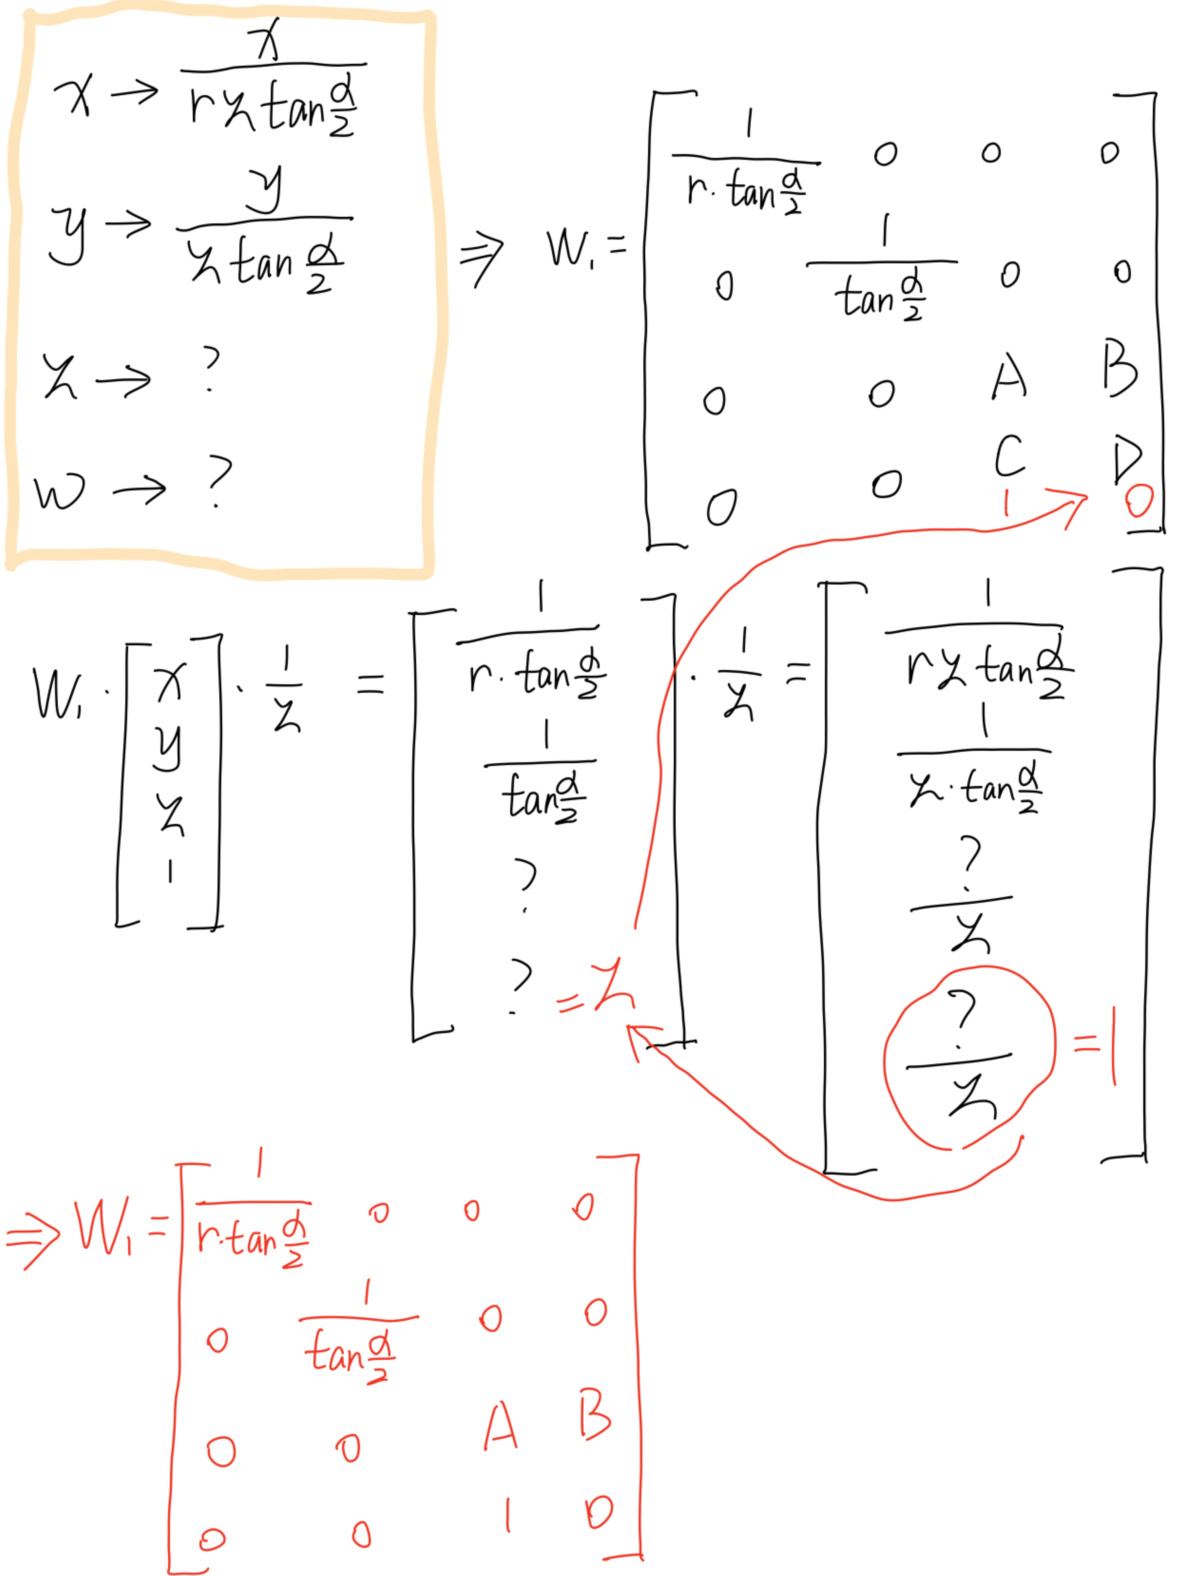 x → x / (r z tan α/2)
y → y / (z tan α/2)
z → ?
w → ?
⇒ W₁ = [
1/(r·tan α/2) 0 0 0
0 1/(tan α/2) 0 0
0 0 A B
0 0 C D
1 → 0
]
W₁ · [x y z 1] · 1/z = [1/(r·tan α/2) 1/(tan α/2) ? ? = z] · 1/z = [1/(r z tan α/2) 1/(z·tan α/2) ?/z ?/z = 1]
⇒ W₁ = [
1/(r·tan α/2) 0 0 0
0 1/(tan α/2) 0 0
0 0 A B
0 0 1 0
]